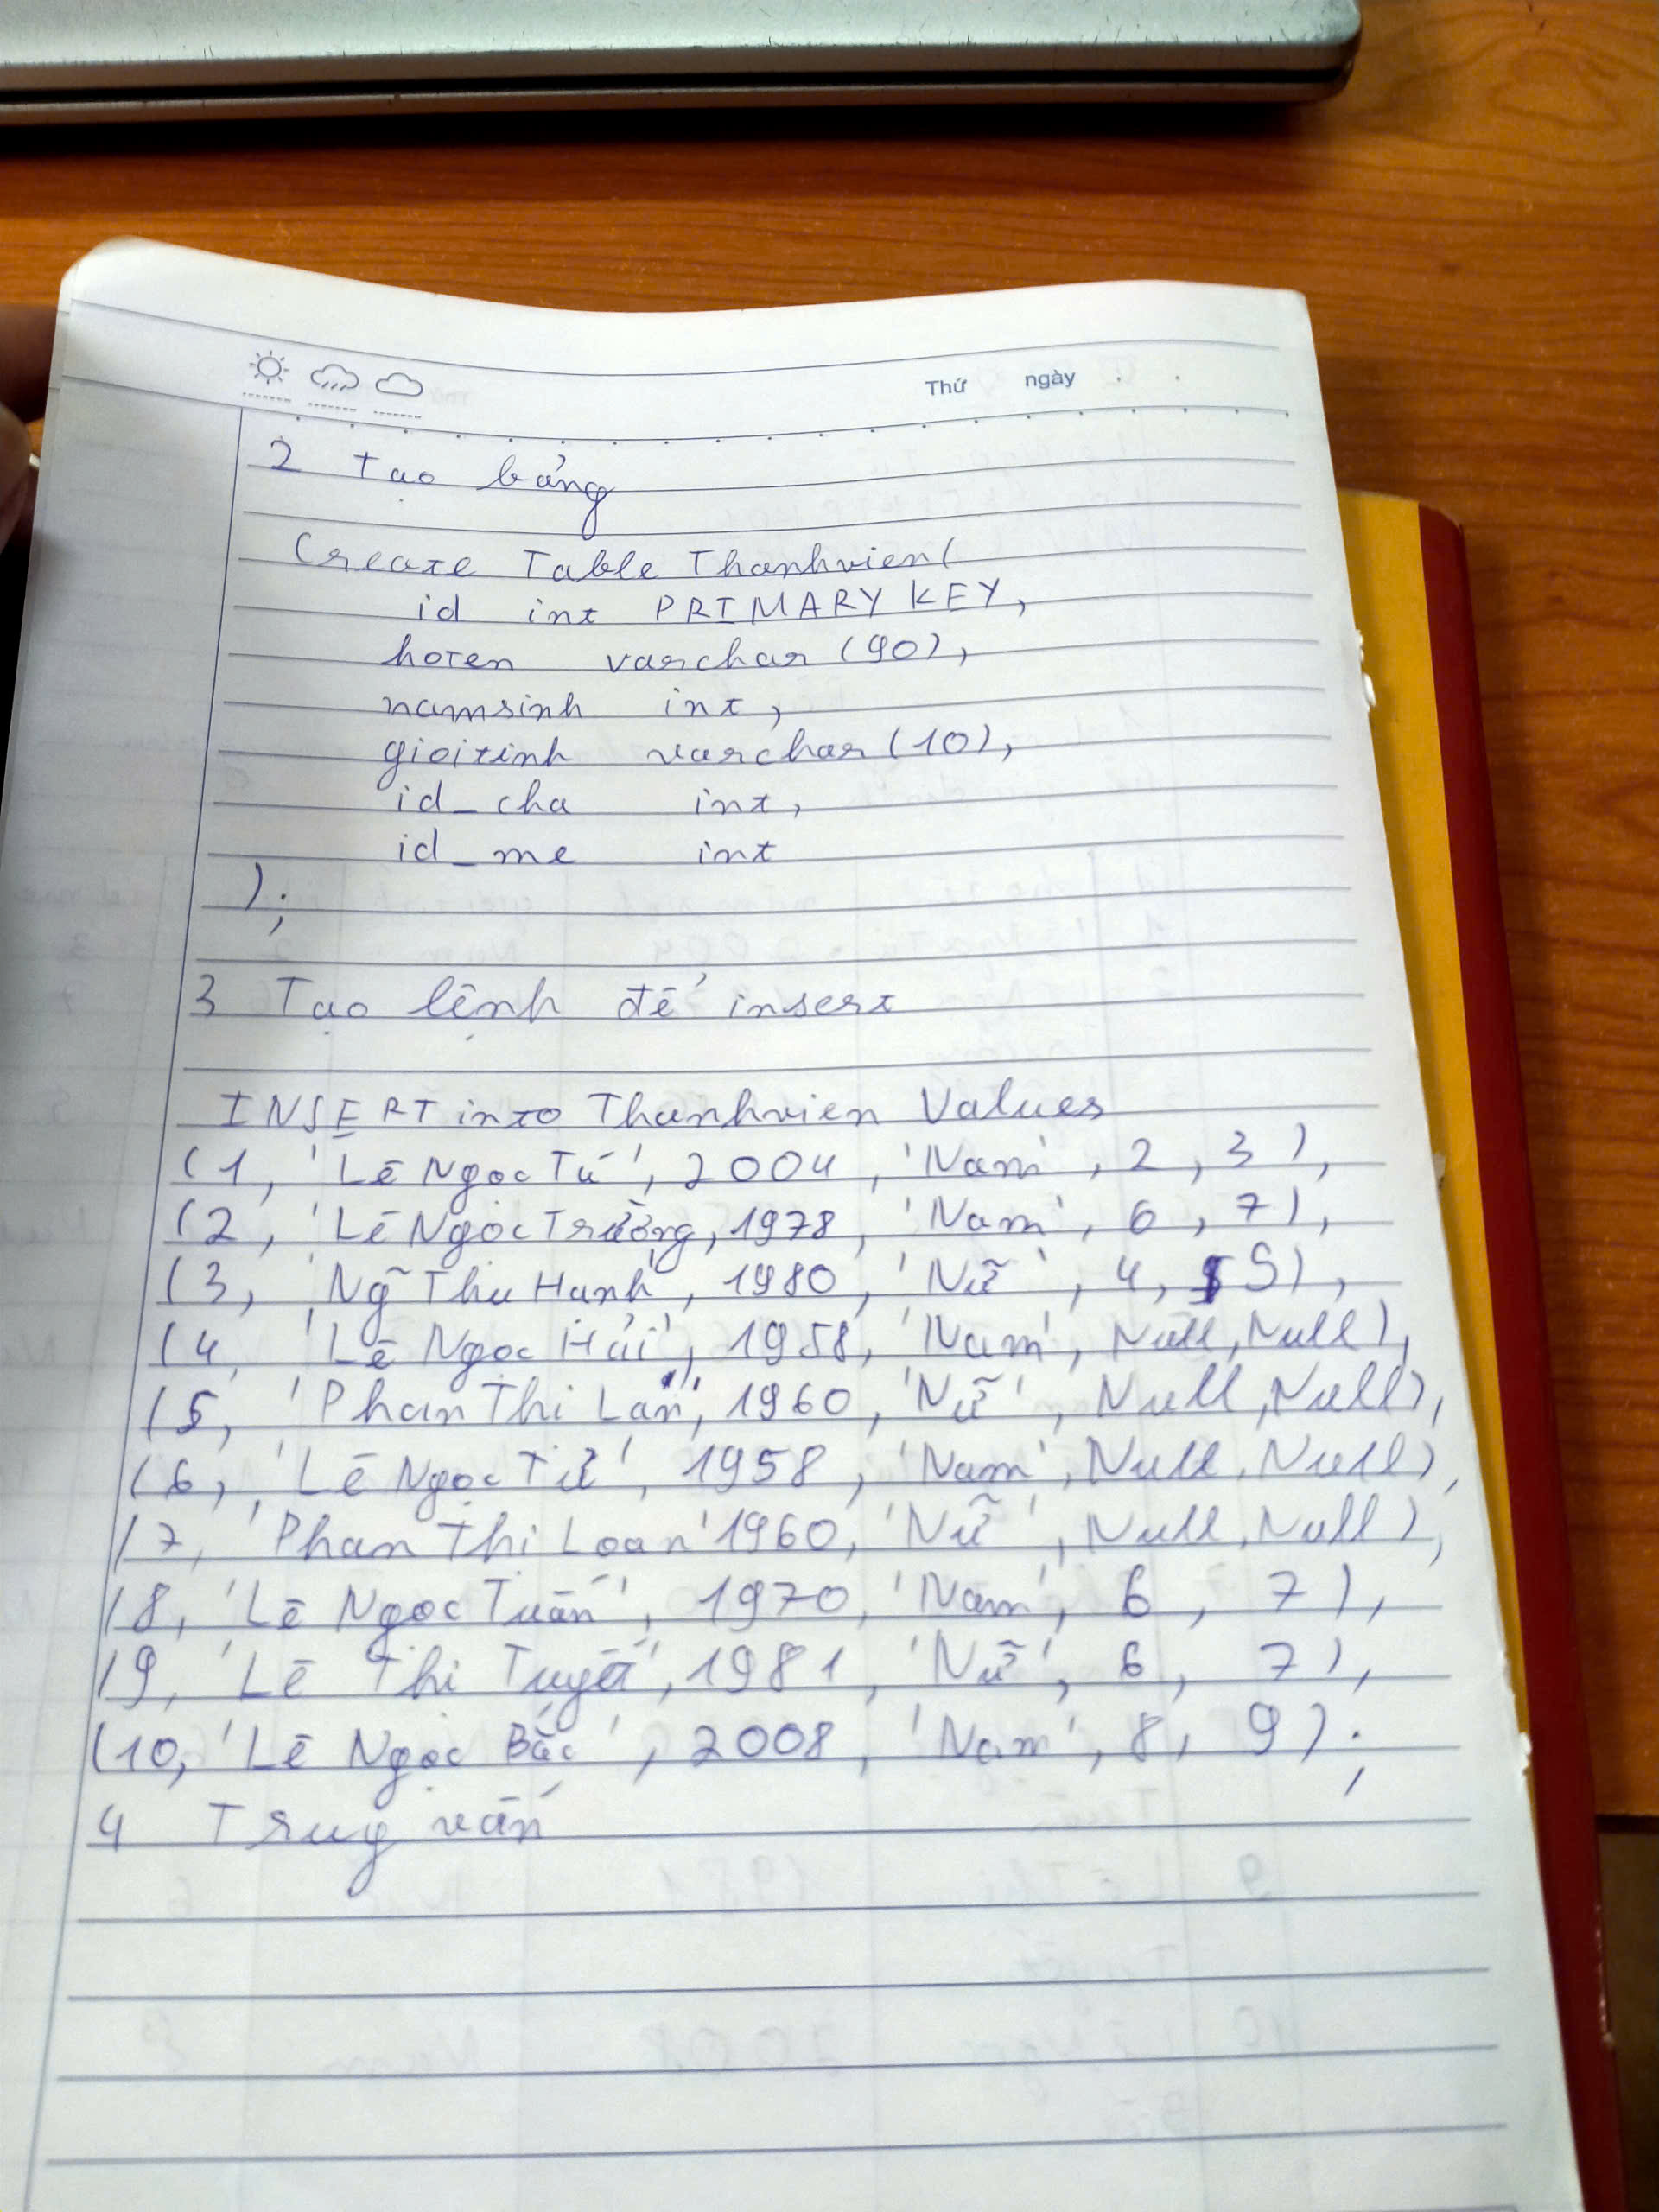 Thứ ngày . .
2 Tạo bảng
Create Table Thanhvien(
id int PRIMARY KEY,
hoten varchar (90),
namsinh int,
gioitinh varchar (10),
id_cha int,
id_me int
);
3 Tạo lệnh để insert
INSERT into Thanhvien Values
(1, 'Lê Ngọc Tú', 2004, 'Nam', 2, 3),
(2, 'Lê Ngọc Trường, 1978, 'Nam', 6, 7),
(3, 'Ng~ Thu Hạnh', 1980, 'Nữ', 4, 5),
(4, 'Lê Ngọc Hải', 1958, 'Nam', Null, Null),
(5, 'Phan Thi Lan', 1960, 'Nữ', Null, Null),
(6, 'Lê Ngọc Tứ', 1958, 'Nam', Null, Null),
(7, 'Phan Thi Loan' 1960, 'Nữ', Null, Null),
(8, 'Lê Ngọc Tuấn', 1970, 'Nam', 6, 7),
(9, 'Lê Thi Tuyết', 1981, 'Nữ', 6, 7),
(10, 'Lê Ngọc Bắc', 2008, 'Nam', 8, 9);
4 Truy vấn